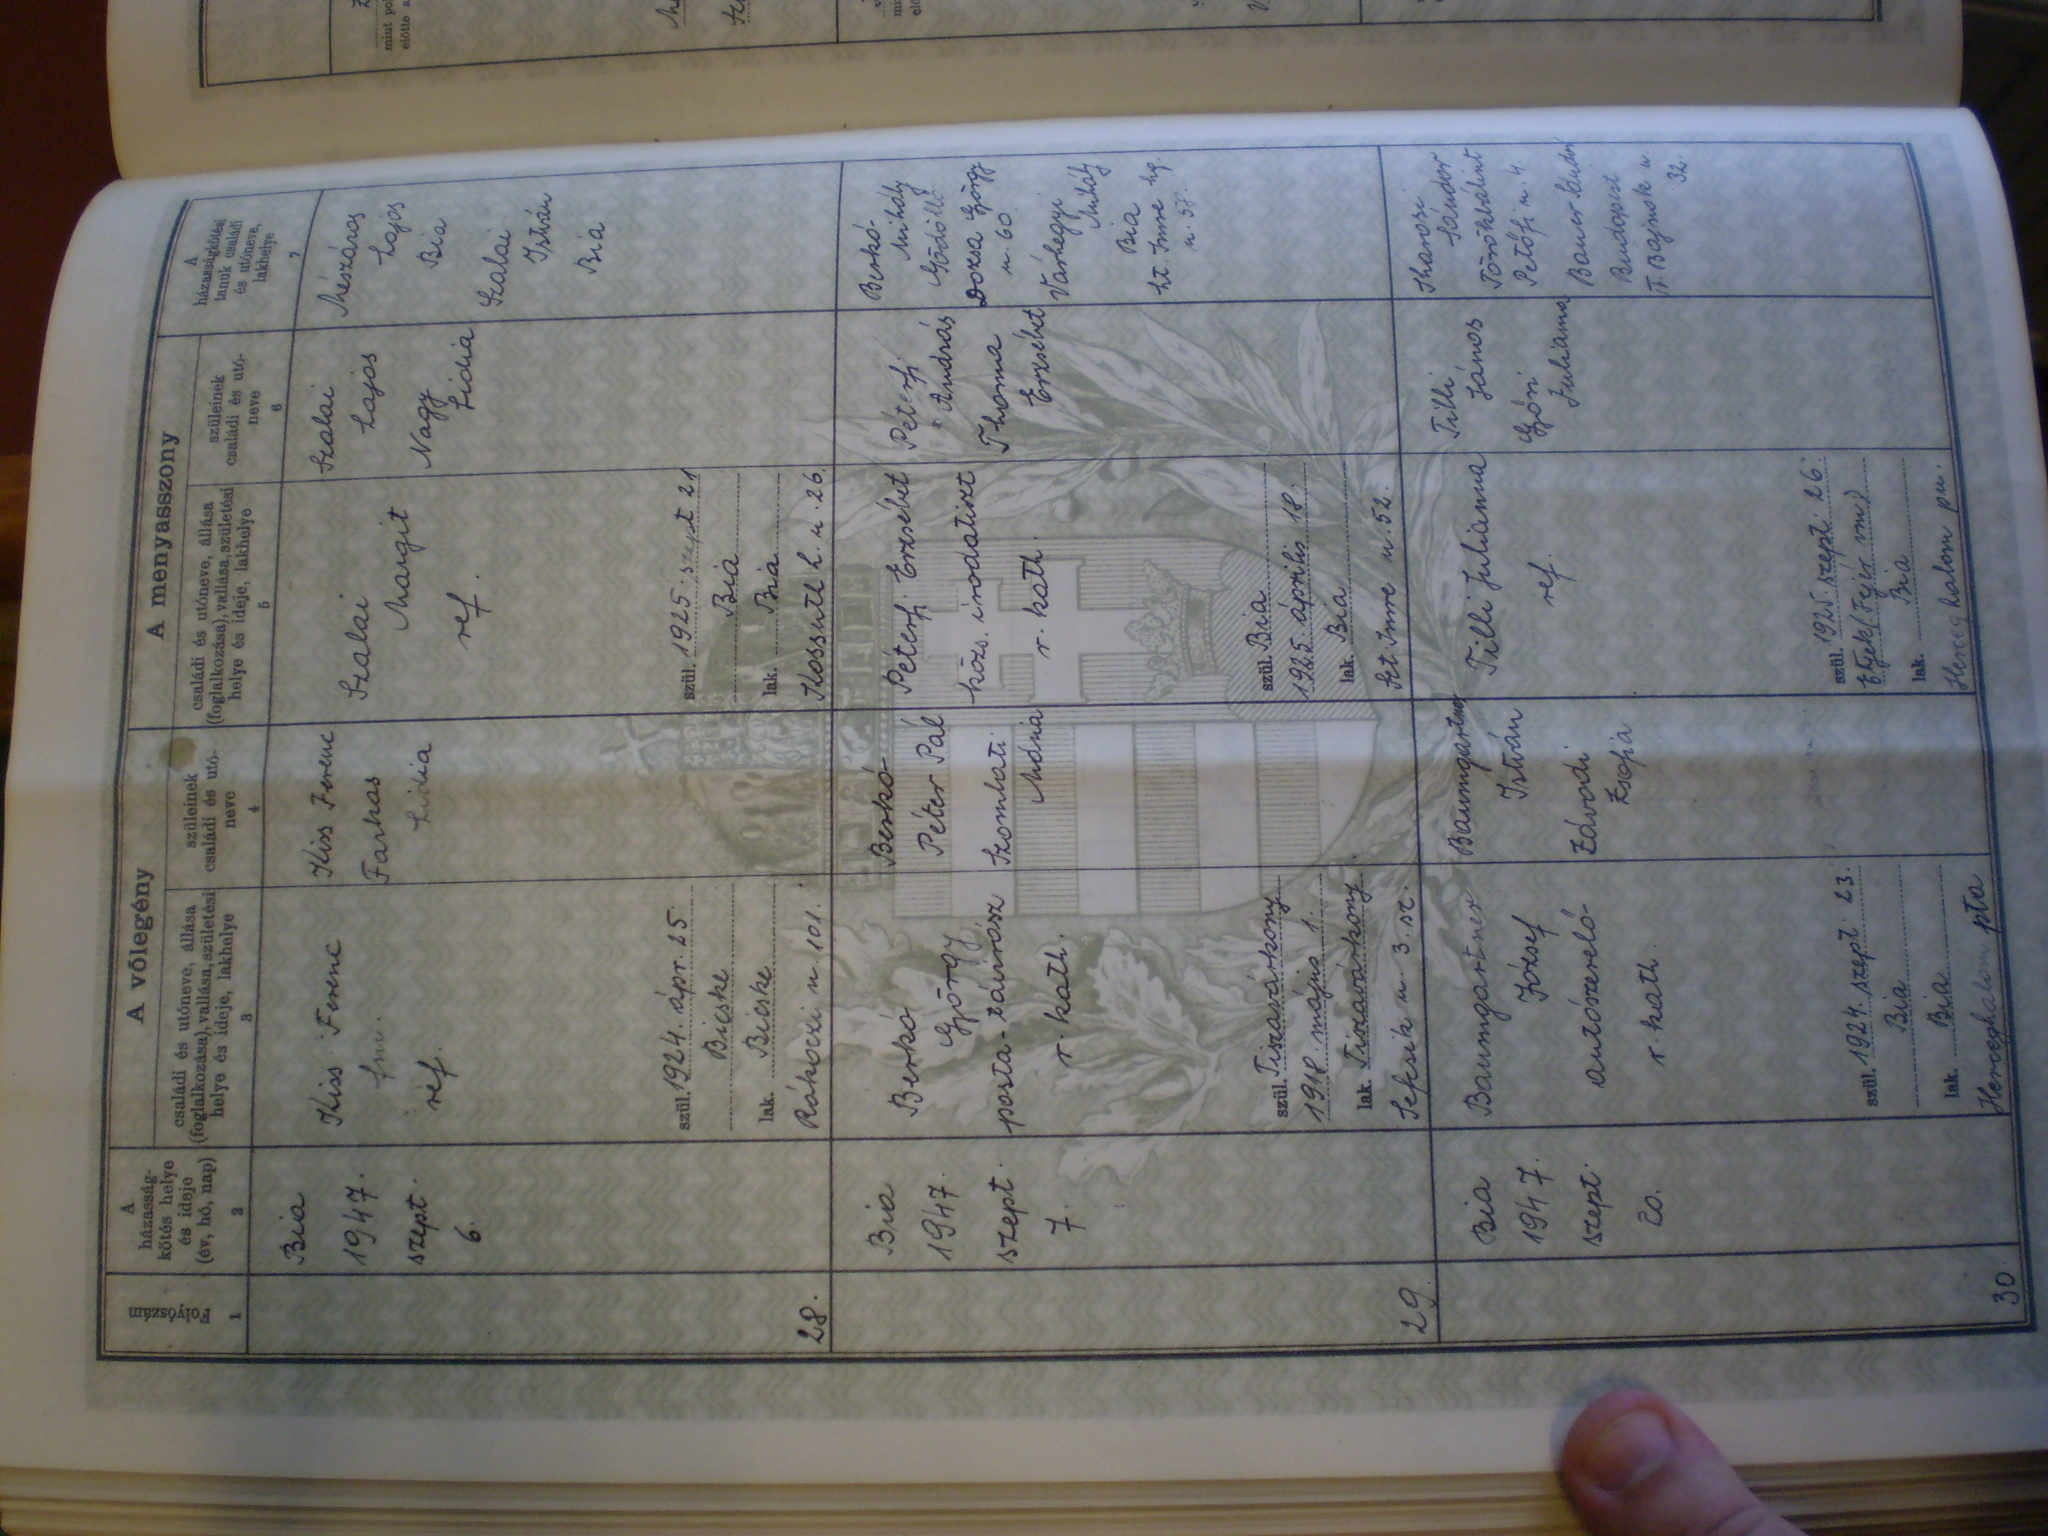 A vőlegény
A menyasszony
Folyószám
1
A
házasság-
kötés helye
és ideje
(év, hó, nap)
2
családi és utóneve, állása
(foglalkozása), vallása, születési
helye és ideje, lakhelye
3
szüleinek
családi és utó-
neve
4
családi és utóneve, állása
(foglalkozása), vallása, születési
helye és ideje, lakhelye
5
szüleinek
családi és utó-
neve
6
A
házasságkötési
tanuk családi
és utóneve,
lakhelye
7
28.
Bia
1947.
szept.
6.
Kiss Ferenc
fm.
ref.
szül. 1924. ápr. 25.
Bicske
lak. Bicske
Rákoczi u 101.
Kiss Ferenc
Farkas
Lidia
Szalai
Margit
ref.
szül. 1925. szept 21
Bia
lak. Bia
Kossuth L. u. 26.
Szalai
Lajos
Nagy
Lidia
Mészáros
Lajos
Bia
Szalai
István
Bia
29.
Bia
1947.
szept.
7.
Berkó
György
posta-távirász
r. kath.
szül. Tiszavárkony
1918. május 1.
lak. Tiszavárkony
u 3. sz.
Berkó
Péter Pál
Szombati
Mária
Péterfi Erzsébet
közs. irodatiszt
r. kath.
szül. Bia
1925. április 18.
lak. Bia
Szt. Imre u. 52.
Péterfi
András
Thoma
Erzsébet
Berkó
Mihály
Gödöllő
Dozsa György
u. 60.
Várhegyi
Mihály
Bia
Szt. Imre hg.
u. 57.
30.
Bia
1947.
szept.
20.
Baumgartner
József
autószerelő
r. kath.
szül. 1924. szept. 23.
Bia
lak. Bia
Herceghalom pta
Baumgartner
István
Zsofia
Tilli Julianna
ref.
szül. 1925. szept. 26.
Etyek (Fejér vm)
lak. Bia
Herceghalom pu.
Tilli
János
Győri
Julianna
Sándor
Törökbálint
Petőfi u. 4.
Bauer
Budapest
Bajmok u.
32.